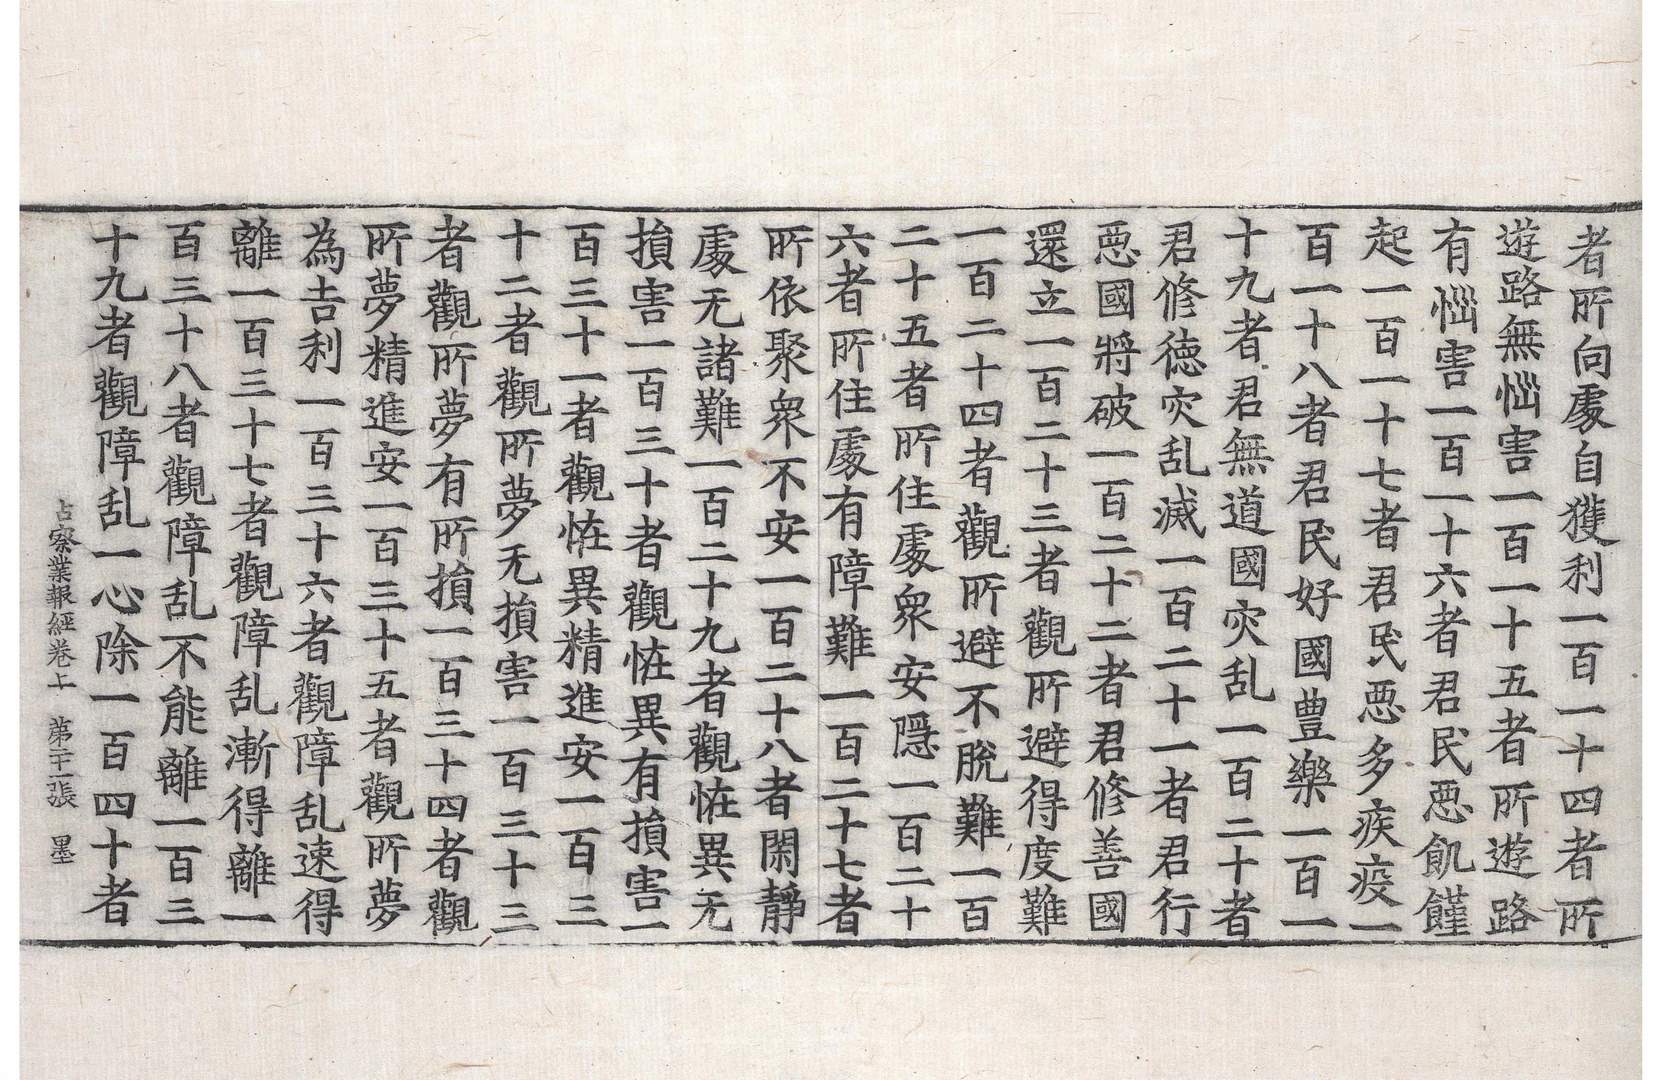 者所向處自獲利一百一十四者所
遊路無惱害一百一十五者所遊路
有惱害一百一十六者君民惡飢饉
起一百一十七者君民惡多疾疫一
百一十八者君民好國豊樂一百一
十九者君無道國灾乱一百二十者
君修德灾乱滅一百二十一者君行
惡國將破一百二十二者君修善國
還立一百二十三者觀所避得度難
一百二十四者觀所避不脫難一百
二十五者所住處衆安隱一百二十
六者所住處有障難一百二十七者
所依聚衆不安一百二十八者閑靜
處无諸難一百二十九者觀恠異无
損害一百三十者觀恠異有損害一
百三十一者觀恠異精進安一百三
十二者觀所夢无損害一百三十三
者觀所夢有所損一百三十四者觀
所夢精進安一百三十五者觀所夢
為吉利一百三十六者觀障乱速得
離一百三十七者觀障乱漸得離一
百三十八者觀障乱不能離一百三
十九者觀障乱一心除一百四十者
占察業報經卷上 第二十一張 墨